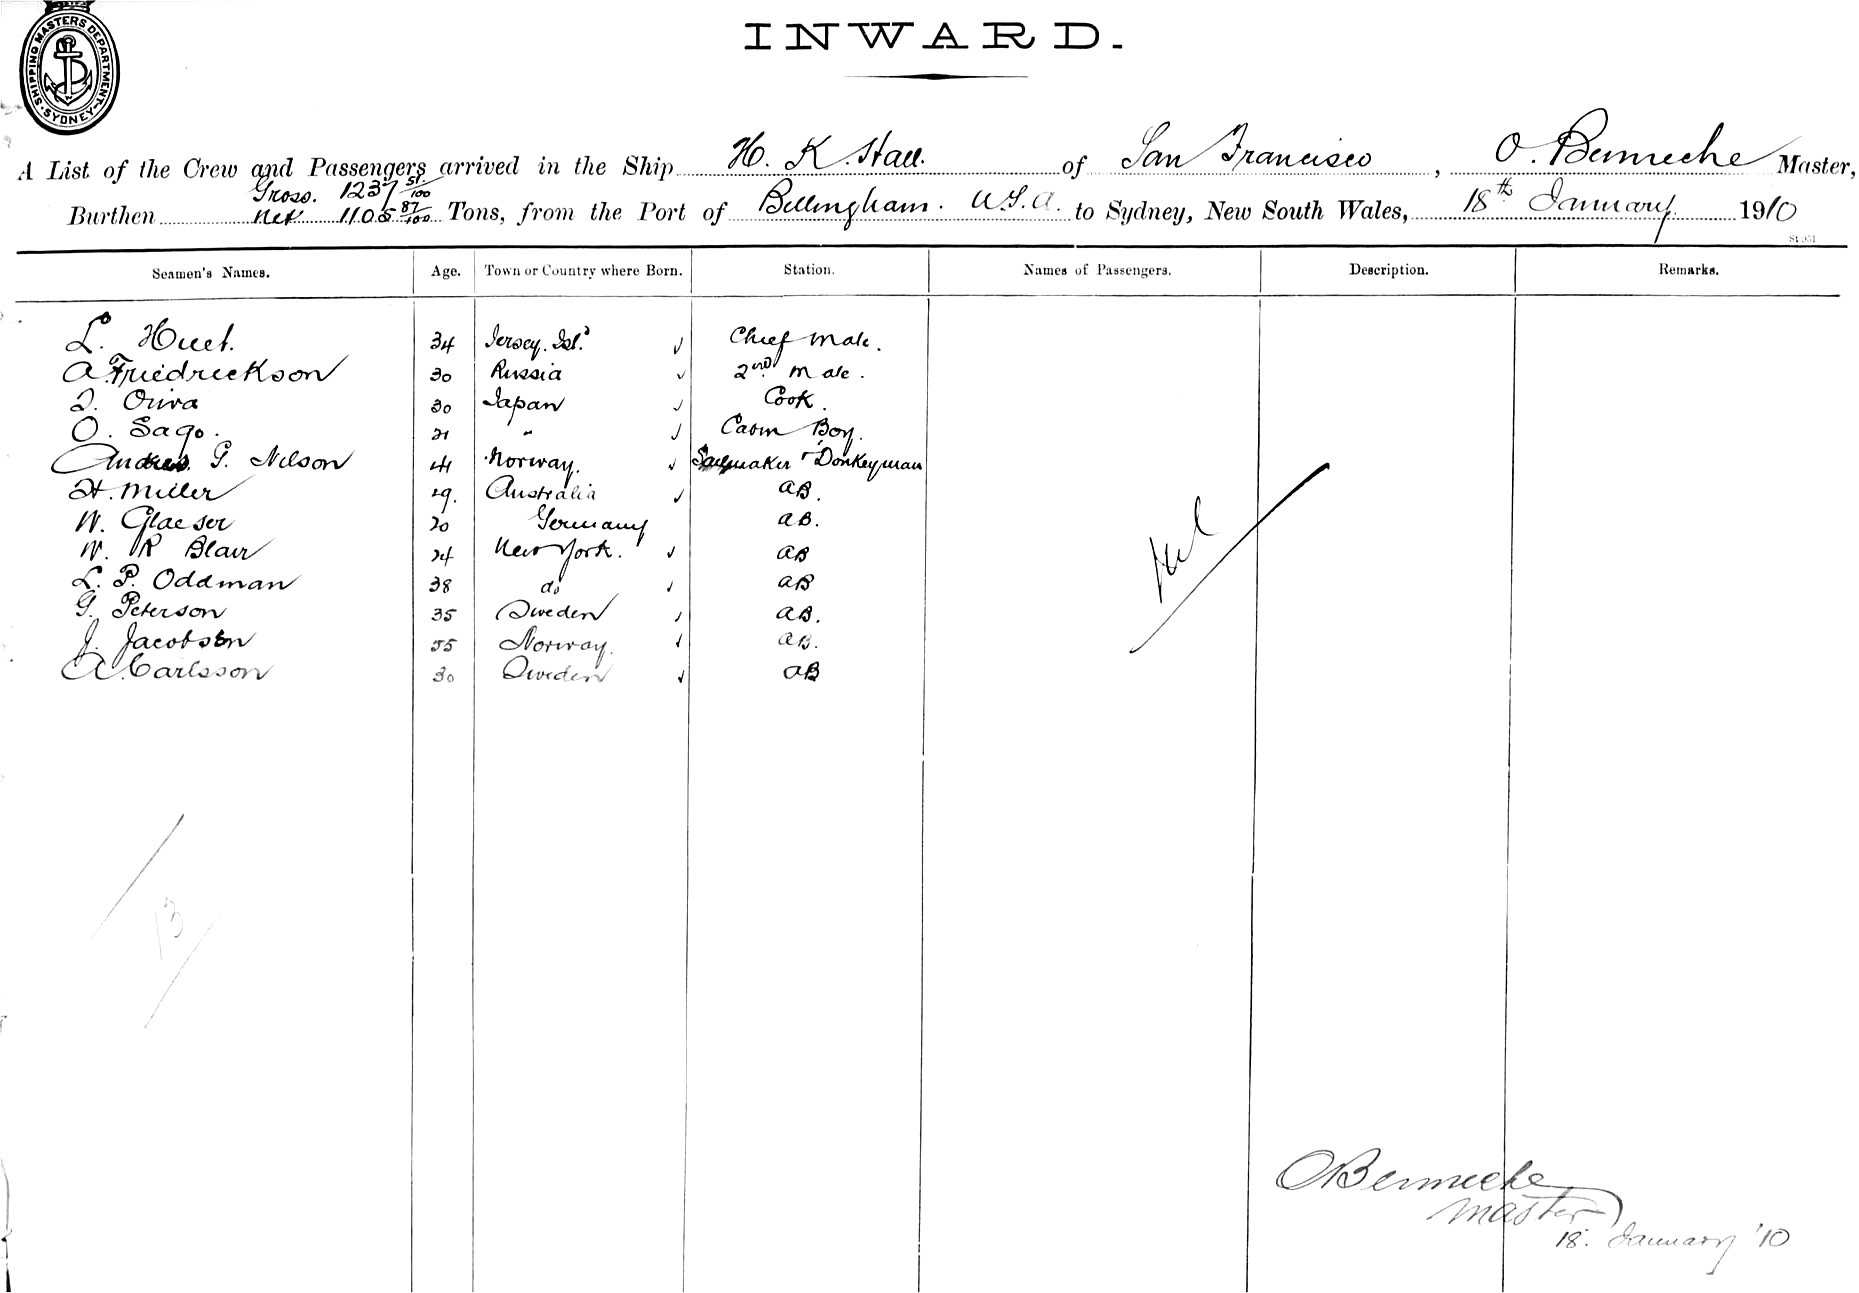 SHIPPING MASTERS DEPARTMENT. SYDNEY
INWARD.
A List of the Crew and Passengers arrived in the Ship H. K. Hall. of San Francisco, O. Benneche Master,
Burthen Gross. 1237 51/100 Net 1105 87/100 Tons, from the Port of Bellingham. U.S.A. to Sydney, New South Wales, 18th January 1910
Seamen's Names. Age. Town or Country where Born. Station. Names of Passengers. Description. Remarks.
L. Huet. 34 Jersey. Isl.d Chief Mate.
A Friedrickson 30 Russia 2nd Mate.
30 Japan Cook.
O. Sago. 21 " Cabin Boy.
Andrew G. Nilson 41 Norway. Sailmaker & Donkeyman
H. Miller 19. Australia AB.
W. Glaeser 20 Germany AB.
W. R Blair 24 New York. AB
L. P. Oddman 38 do AB
G. Peterson 35 Sweden AB.
J. Jacobson 55 Norway. AB.
A. Carlsson 30 Sweden AB
Nil
13
O Benneche
Master
18. January '10